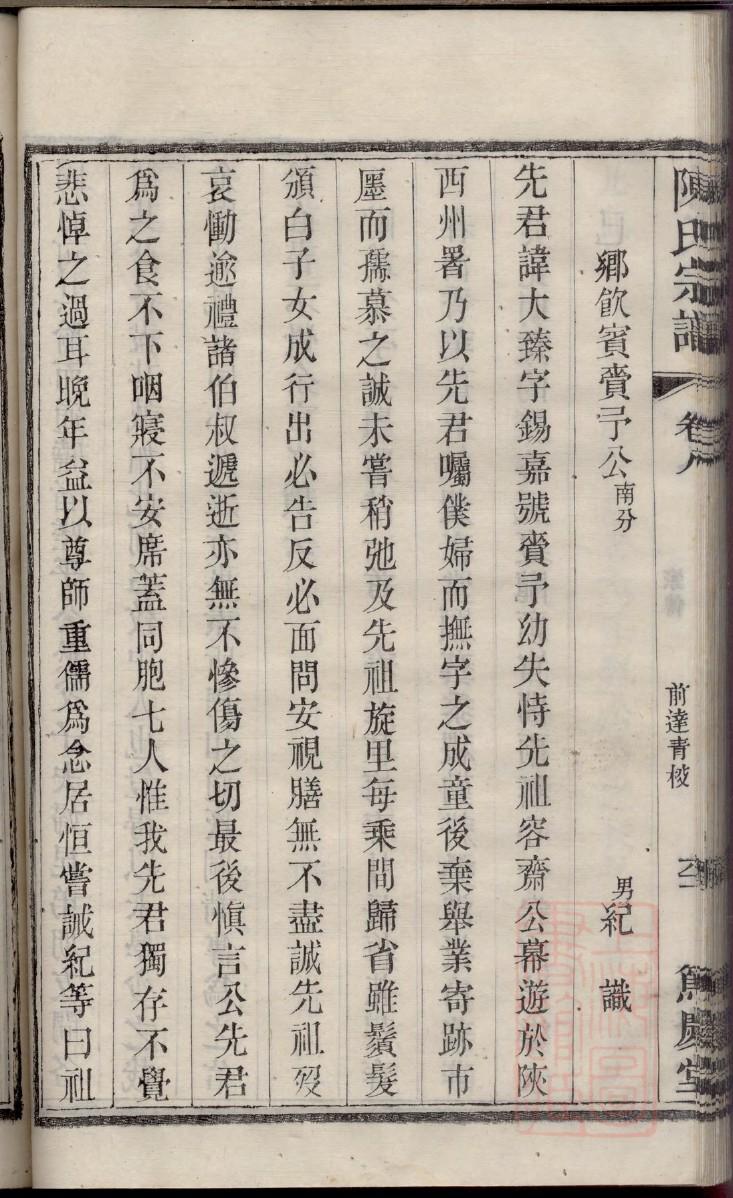 陳氏宗譜
卷八
前達青校
篤慶堂
鄉飲賓賚予公南分
男紀 識
先君諱大臻字錫嘉號賚予幼失恃先祖容齋公幕遊於陝
西州署乃以先君囑僕婦而撫字之成童後棄舉業寄跡市
廛而孺慕之誠未嘗稍弛及先祖旋里每乘間歸省雖鬚髮
頒白子女成行出必告反必面問安視膳無不盡誠先祖歿
哀慟逾禮諸伯叔遞逝亦無不慘傷之切最後愼言公先君
爲之食不下咽寢不安席蓋同胞七人惟我先君獨存不覺
悲悼之過耳晚年益以尊師重儒爲念居恒嘗誡紀等曰祖